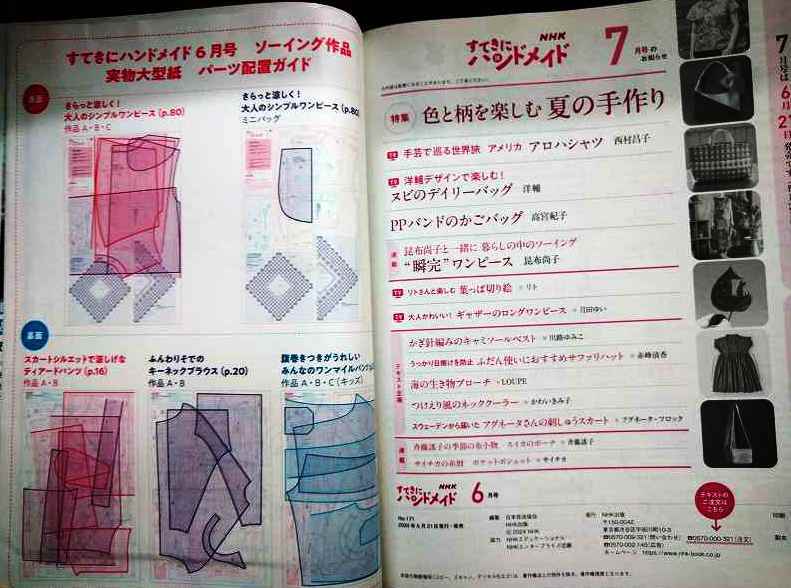 すてきにハンドメイド6月号 ソーイング作品
実物大型紙 パーツ配置ガイド
表面
さらっと涼しく!
大人のシンプルワンピース(p.80)
作品A・B・C
さらっと涼しく!
大人のシンプルワンピース(p.80)
ミニバッグ
裏面
スカートシルエットで涼しげな
ティアードパンツ(p.16)
作品A・B
ふんわりそでの
キーネックブラウス(p.20)
作品A・B
腹巻きつきがうれしい
みんなのワンマイルパンツ
作品A・B・C(キッズ)
NHK
すてきに
ハンドメイド
7月号の
お知らせ
特集 色と柄を楽しむ 夏の手作り
TV 手芸で巡る世界旅 アメリカ アロハシャツ 西村昌子
TV 洋輔デザインで楽しむ!
ヌビのデイリーバッグ 洋輔
PPバンドのかごバッグ 高宮紀子
連載 昆布尚子と一緒に 暮らしの中のソーイング
“瞬完”ワンピース 昆布尚子
TV リトさんと楽しむ 葉っぱ切り絵 リト
TV 大人かわいい! ギャザーのロングワンピース 月田ゆい
テキスト企画
かぎ針編みのキャミソールベスト 川路ゆみこ
うっかり日焼けを防止 ふだん使いにおすすめサファリハット 赤峰清香
海の生き物ブローチ LOUPE
つけえり風のネッククーラー かわいきみ子
スウェーデンから届いた アグネータさんの刺しゅうスカート アグネータ・フロック
連載
斉藤謠子の季節の布小物 スイカのポーチ 斉藤謠子
サイチカの糸朋 ポケットポシェット サイチカ
7月号は6月21日発売です
NHK
すてきに
ハンドメイド 6月号
テキストの
ご注文は
こちら
No.171
編集 日本放送協会
NHK出版
© 2024 NHK
協力 NHKエデュケーショナル
NHKエンタープライズ近畿
発行 NHK出版
〒150-0042
東京都渋谷区宇田川町10-3
☎0570-009-321(問い合わせ)
☎0570-000-321(注文)
ホームページ https://www.nhk-book.co.jp
印刷
製本